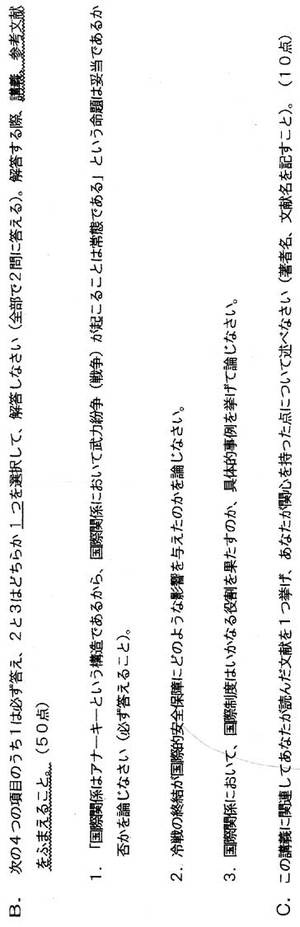 B. 次の4つの項目のうち1は必ず答え、2と3はどちらか1つを選択して、解答しなさい（全部で2問に答える）。解答する際、講義、参考文献
をふまえること。（50点）
1. 「国際関係はアナーキーという構造であるから、国際関係において武力紛争（戦争）が起こることは常態である」という命題は妥当であるか
否かを論じなさい（必ず答えること）。
2. 冷戦の終結が国際的安全保障にどのような影響を与えたのかを論じなさい。
3. 国際関係において、国際制度はいかなる役割を果たすのか、具体的事例を挙げて論じなさい。
C. この講義に関連してあなたが読んだ文献を1つ挙げ、あなたが関心を持った点について述べなさい（著者名、文献名を記すこと）。（10点）